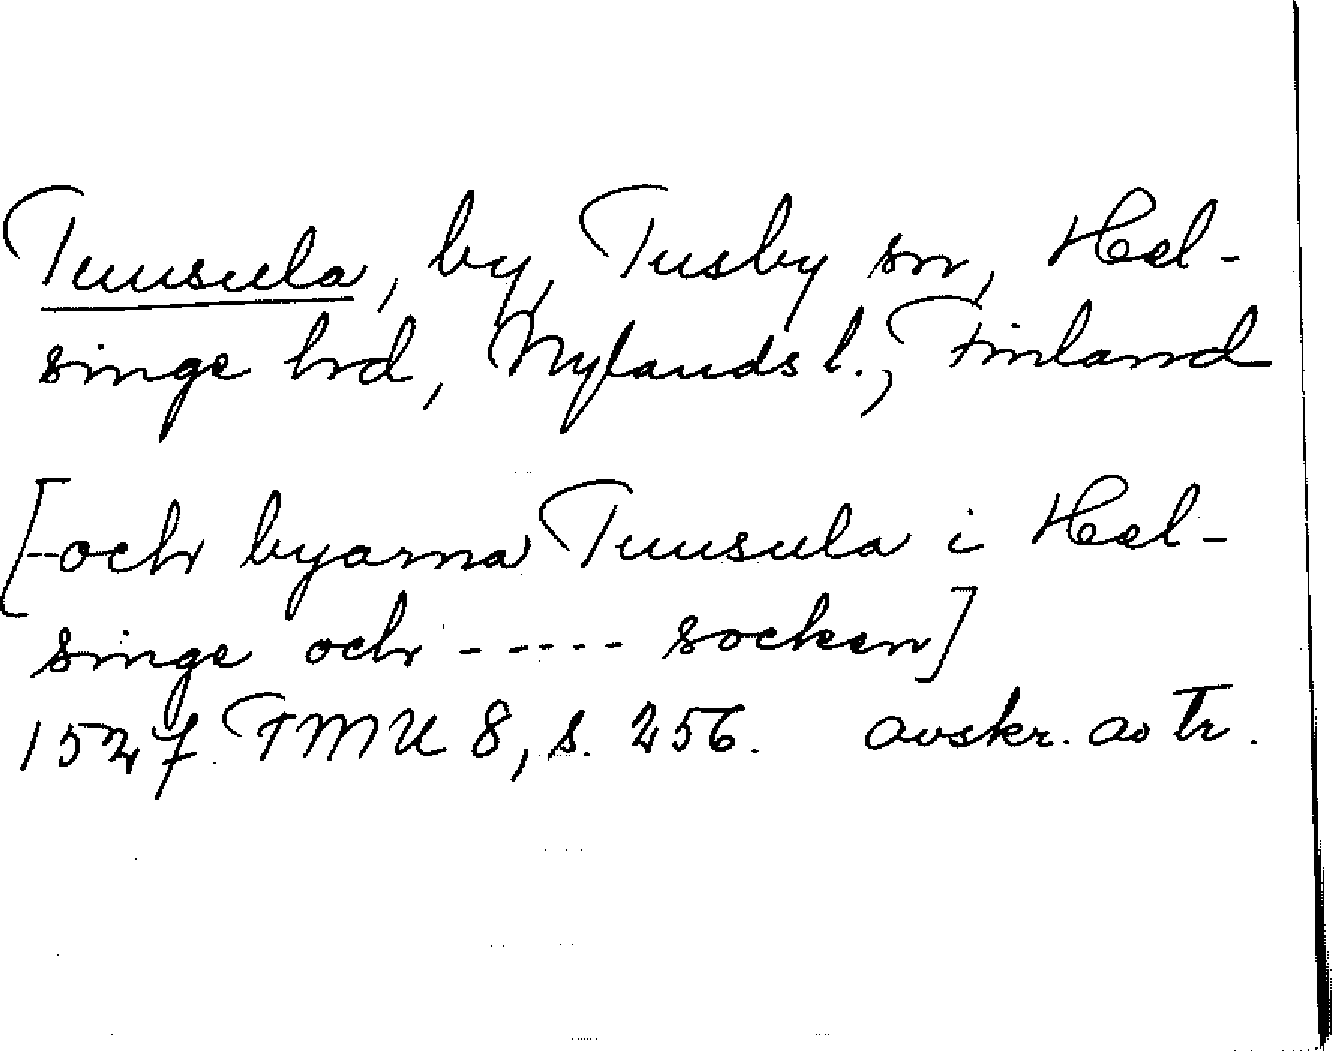 Tuusula, by, Tusby sn, Hel-
singe hd, Nylands l., Finland
[-och byarna Tuusula i Hel-
singe och ----- socken]
1527 FMU 8, s. 256. avskr. av tr.